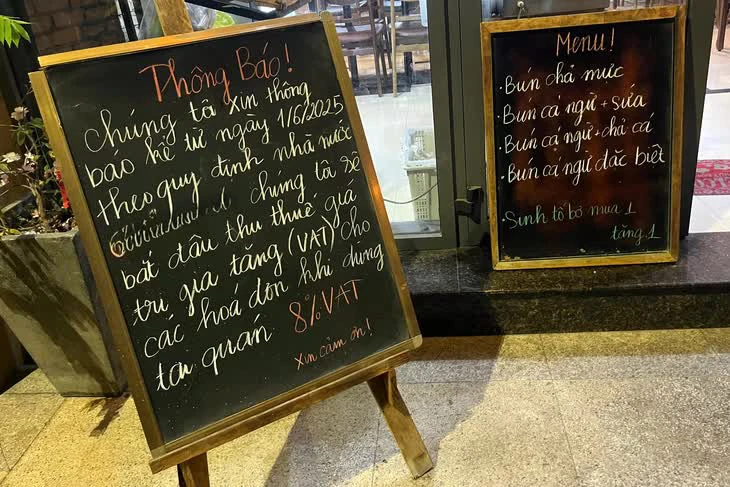 Thông Báo!
Chúng tôi xin thông
báo kể từ ngày 1/6/2025
theo quy định nhà nước
chúng tôi sẽ
bắt đầu thu thuế giá
trị gia tăng (VAT) cho
các hoá đơn khi dùng
tại quán 8% VAT
Xin cảm ơn!
Menu!
. Bún chả mực
. Bún cá ngừ + sứa
. Bún cá ngừ + chả cá
. Bún cá ngừ đặc biệt
Sinh tố bơ mua 1
tặng 1